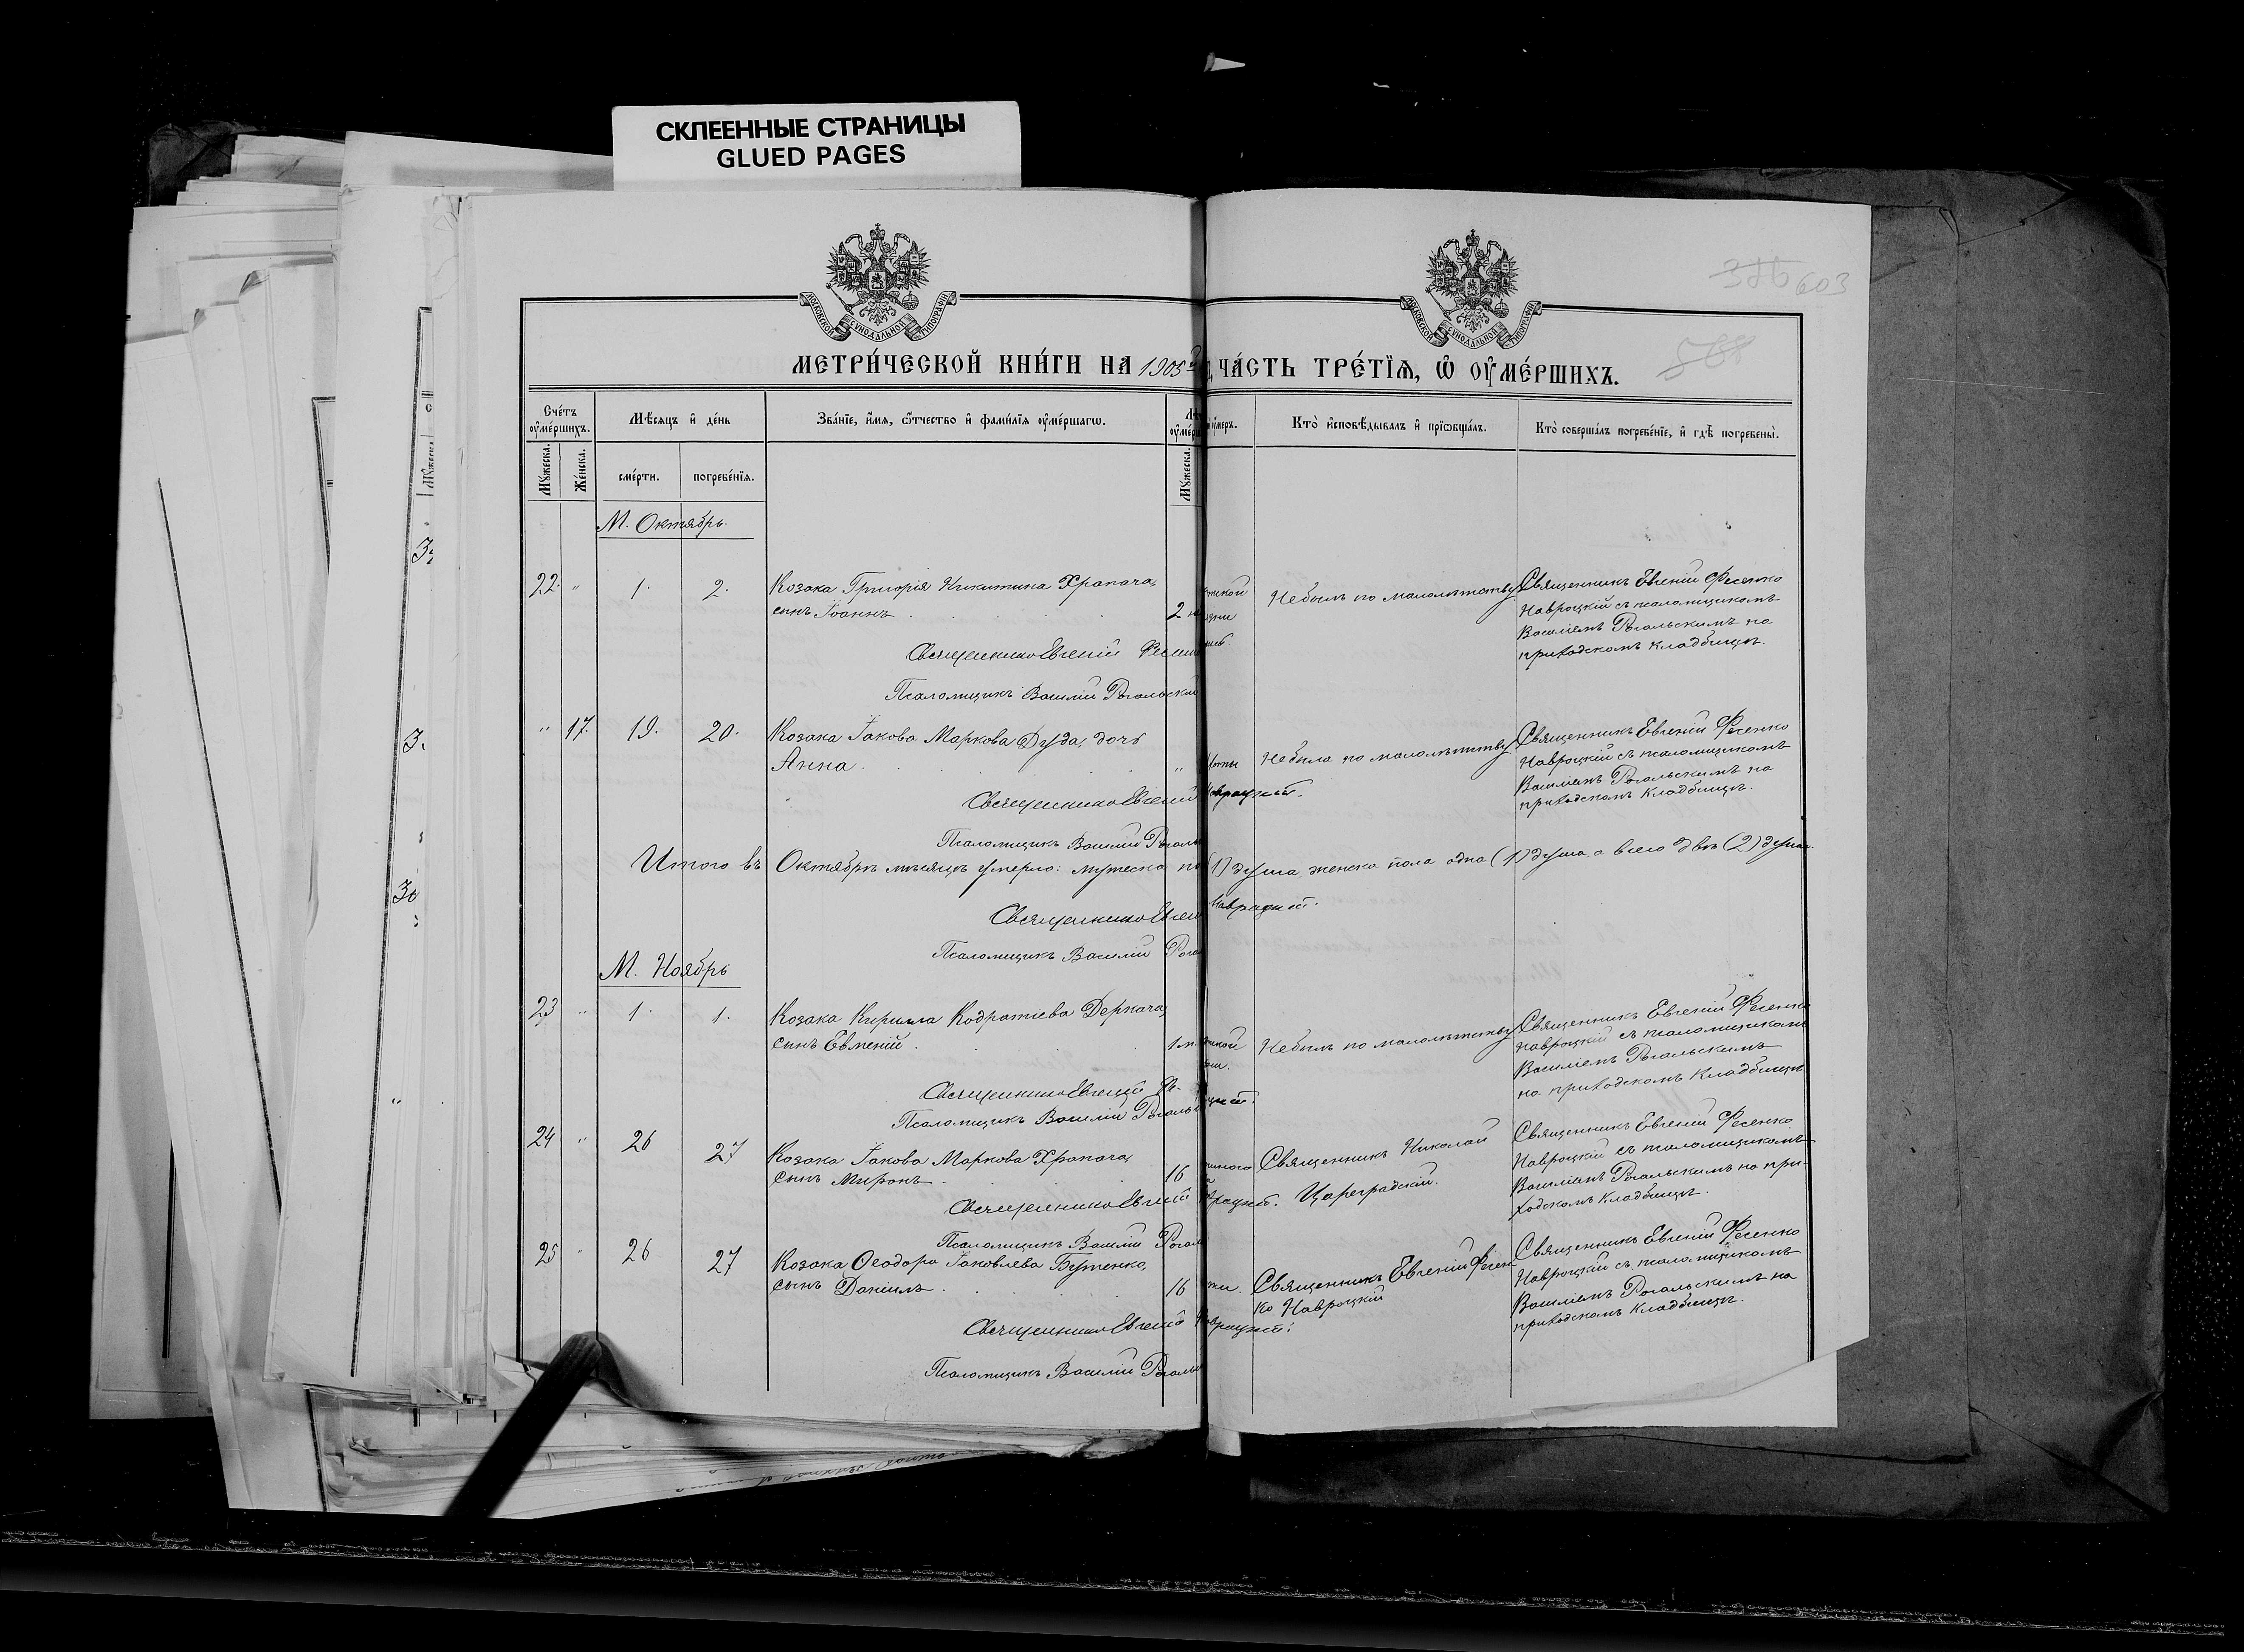 СКЛЕЕННЫЕ СТРАНИЦЫ
GLUED PAGES
386 603
МОСКОВСКОЙ СѴНОДАЛЬНОЙ ТИПОГРАФІИ
МОСКОВСКОЙ СѴНОДАЛЬНОЙ ТИПОГРАФІИ
МЕТРИ́ЧЕСКОЙ КНИ́ГИ НА 1905й
ЧА́СТЬ ТРЕ́ТЇѦ, Ѿ ОУМЕ́РШИХЪ.
Сче́тъ оуме́ршихъ.
Мѣ́сяцъ и де́нь
Зва́нїе, и́мя, ѻ́тчество и фами́лїя оуме́ршагѡ.
оуме́р
оумеръ.
Кто̀ и́сповѣ́дывалъ и прїѡбща́лъ.
Кто̀ соверша́лъ погребе́нїе, и гдѣ̀ погребены̀.
Мꙋ́жеска.
Же́нска.
сме́рти.
погребе́нїя.
Мꙋ́жеска.
М. Октябрь.
22. " 1. 2. Козака Григорія Никитина Храпача,
сынъ Іоаннъ . 2 не
Не былъ по малолѣтству.
Священникъ Евгеній Фесенко
Навроцкій съ псаломщикомъ
Василіемъ Рогальскимъ на
приходскомъ кладбищѣ.
Священникъ Евгеній Фесен
Псаломщикъ Василій Рогальскій
" 17. 19. 20. Козака Іакова Маркова Дуда, дочь
Анна . "
Не была по малолѣтству.
Священникъ Евгеній Фесенко
Навроцкій съ псаломщикомъ
Василіемъ Рогальскимъ на
приходскомъ кладбищѣ.
Священникъ Евгеній Навроцкій.
Псаломщикъ Василій Рогаль
Итого въ Октябрѣ мѣсяцѣ умерло: мужеска по (1) душа женска пола одна (1) душа, а всего двѣ (2) души.
Священникъ Евген Навроцкій.
Псаломщикъ Василій Рога
М. Ноябрь
23 " 1. 1. Козака Кирилла Кодратіева Деркача,
сынъ Евменій . 1 м.
Не былъ по малолѣтству
Священникъ Евгеній Фесенко
Навроцкій съ псаломщикомъ
Василіемъ Рогальскимъ
на приходскомъ кладбищѣ
Священникъ Евгеній Ф.
Псаломщикъ Василій Рогальс
24 " 26 27 Козака Іакова Маркова Храпача,
сынъ Миронъ . 16
Священникъ Николай
Цареградскій.
Священникъ Евгеній Фесенко
Навроцкій съ псаломщикомъ
Василіемъ Рогальскимъ на при-
ходскомъ кладбищѣ.
Священникъ Евгеній Навроцкій.
Псаломщикъ Василій Рогал
25 " 26 27 Козака Ѳеодора Іаковлева Бутенко,
сынъ Даніилъ . 16
Священникъ Евгеній Фесен
ко Навроцкій
Священникъ Евгеній Фесенко
Навроцкій съ псаломщикомъ
Василіемъ Рогальскимъ на
приходскомъ кладбищѣ.
Священникъ Евгеній Навроцкій.
Псаломщикъ Василій Рогаль